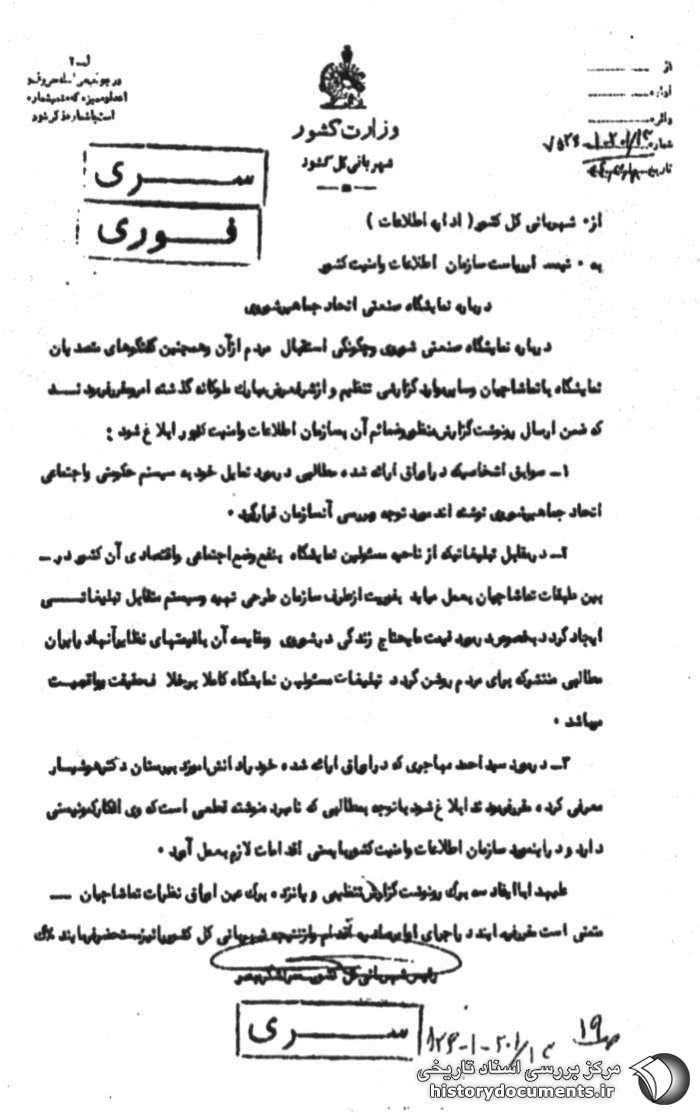 از
اداره
دائره
شماره
تاریخ
وزارت کشور
شهربانی کل کشور
سری
فوری
از: شهربانی کل کشور (اداره اطلاعات)
به: تیمسار ریاست سازمان اطلاعات وامنیت کشور
درباره نمایشگاه صنعتی اتحاد جماهیرشوروی
درباره نمایشگاه صنعتی شوروی وچگونگی استقبال مردم ازآن وهمچنین گفتگوهای متصدیان
نمایشگاه باتماشاچیان وسایرموارد گزارشی تنظیم و ازشرفعرض مبارک ملوکانه گذشته امرومقررفرمودند
که ضمن ارسال رونوشت گزارش منظور وضمائم آن بسازمان اطلاعات وامنیت کشور ابلاغ شود:
۱ــ سوابق اشخاصیکه دراوراق ارائه شده مطالبی درمورد تمایل خود به سیستم حکومتی واجتماعی
اتحاد جماهیرشوروی نوشته اند مورد توجه وبررسی آنسازمان قرارگیرد.
۲ــ درمقابل تبلیغاتیکه از ناحیه مسئولین نمایشگاه بنفع وضع اجتماعی واقتصادی آن کشور در ــ
بین طبقات تماشاچیان بعمل میاید بفوریت ازطرف سازمان طرحی تهیه وسیستم متقابل تبلیغاتــی
ایجاد گردد بخصوص درمورد قیمت مایحتاج زندگی درشوروی ومقایسه آن باقیمتهای نظایرآنهادرایران
مطالبی منتشرکه برای مردم روشن گردد تبلیغات مسئولین نمایشگاه کاملا برخلاف حقیقت وواقعیت
میباشد.
۳ــ درمورد سیداحمد مهاجری که دراوراق ارائه شده خودرادانش آموزدبیرستان دکترهوشیار
معرفی کرده مقررفرمودند ابلاغ شود باتوجه بمطالبی که نامبرده نوشته قطعی است که وی افکارکمونیستی
دارد ودراینمورد سازمان اطلاعات وامنیت کشوربایستی اقدامات لازم بعمل آورد.
علیهذا باایفاد سه برگ رونوشت گزارش تنظیمی و پانزده برگ عین اوراق نظرات تماشاچیان ــ
متمنی است مقررفرمایند دراجرای اوامرصادره اقدام وازنتیجه شهربانی کل کشوررانیزمستحضرفرمایند
رئیس شهربانی کل کشور
سری
۱۹
مرکز بررسی اسناد تاریخی
historydocuments.ir